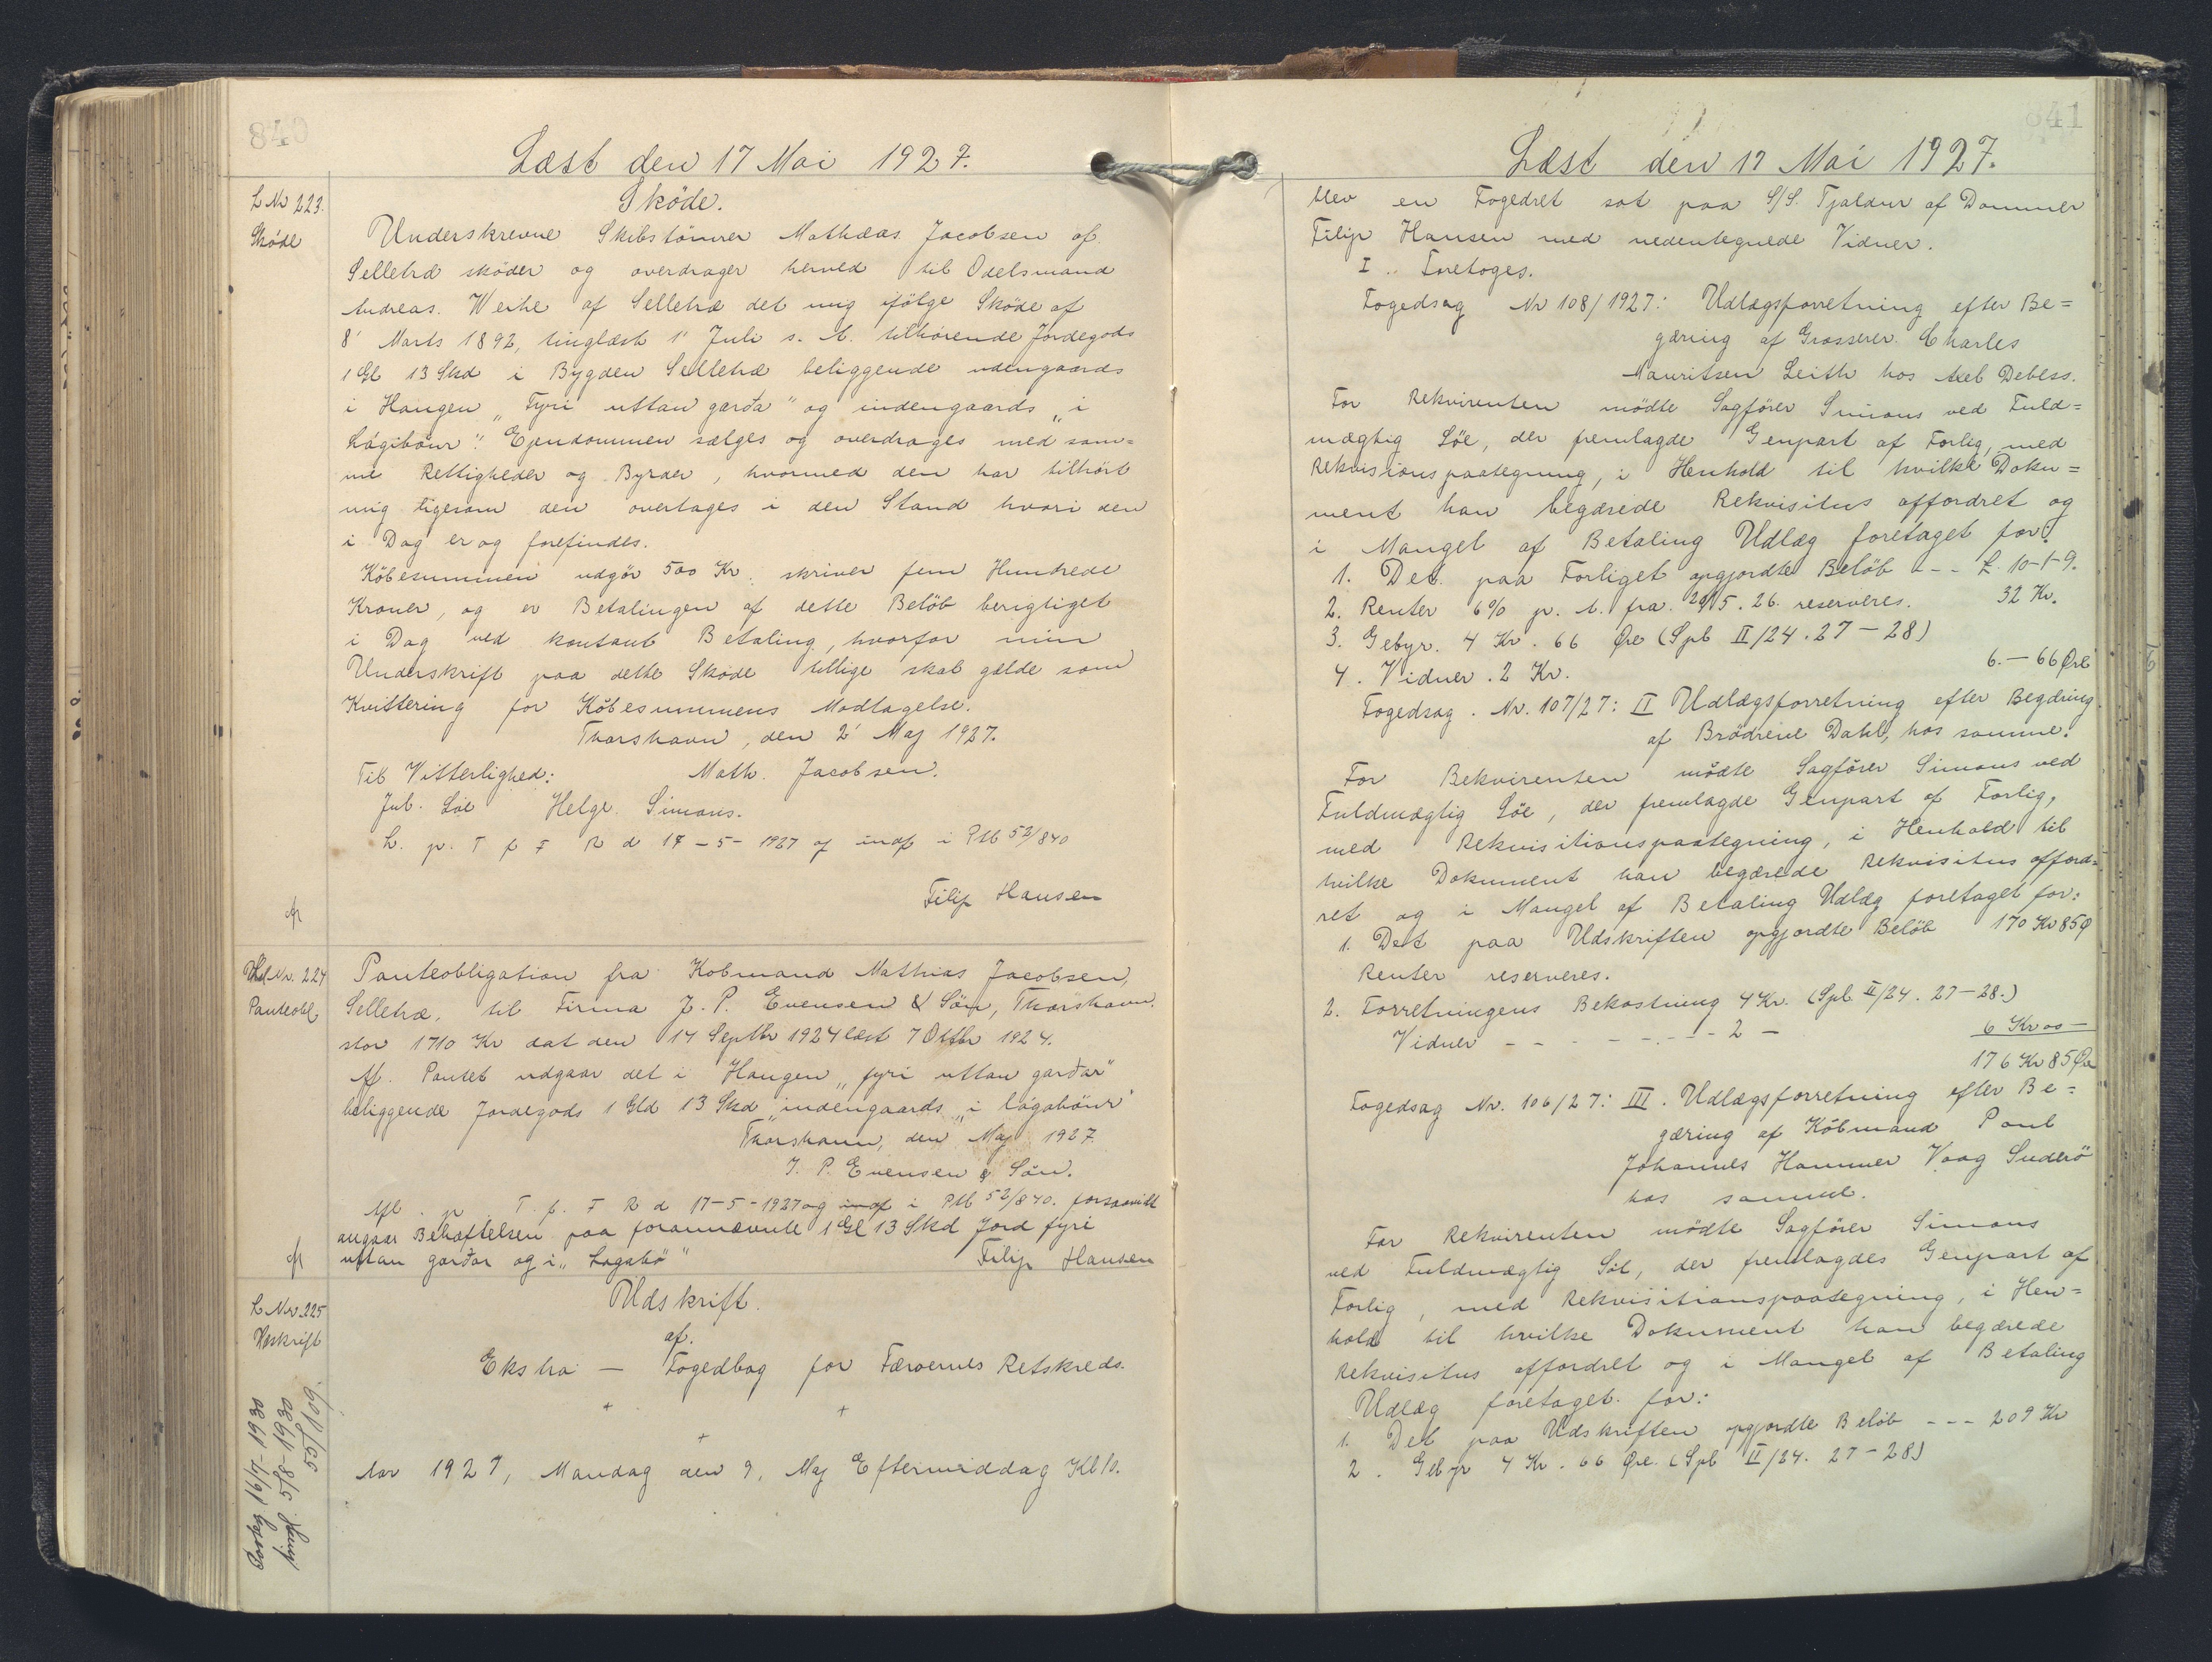 840
Læst den 17 Mai 1927.
L Nr 223.
Sköde
Sköde.
Underskrevne Skibstömrer Mathæas Jacobsen af
Selletræ sköder og overdrager herved til Odelsmand
Andreas. Weihe af Selletræ det mig ifölge Sköde af
8' Marts 1892, tinglæst 1' Juli s. A. tilhörende Jordegods
1 Gl 13 Skd i Bygden Selletræ beliggende udengaards
i Haugen „Fyri uttan garða" og indengaards „i
Lágiböur". Ejendommen sælges og overdrages med sam=
me Rettigheder og Byrder, hvormed den har tilhört
mig ligesom den overtages i den Stand hvori den
i Dag er og forefindes.
Köbesummen udgör 500 Kr. skriver fem Hundrede
Kroner, og er Betalingen af dette Belöb berigtiget
i Dag ved kontant Betaling, hvorfor min
Underskrift paa dette Sköde tillige skal gælde som
Kvittering for Köbesummens Modtagelse.
Thorshavn, den 2' Maj 1927.
Til Vitterlighed: Math. Jacobsen.
Jul. Löe Helge. Simons.
L. p. T f F R d 17-5-1927 og indf i PM 52/840
Filip Hansen
L Nr. 224
Panteobl.
Panteobligation fra Kobmand Mathias Jacobsen,
Selletræ. til Firma J. P. Evensen & Sön, Thorshavn.
stor 1710 Kr dat den 14 Septbr 1924 læst 7 Oktbr 1924.
Af. Pantet udgaar det i Haugen „fyri uttan garðar"
beliggende Jordegods 1 Gld 13 Skd indengaards „i lágaböur"
Thorshavn, den Maj 1927.
J. P. Evensen & Sön.
Afl. p. T. f. F R d 17-5-1927 og indf i PM 52/840. forsaavidt
angaar Behæftelsen paa forannævnte 1 Gl 13 Skd Jord fyri
uttan garðar og i „Lagabö" Filip Hansen
L Nr. 225
Udskrift
Udskrift.
af.
Ekstra — Fogedbog for Færoernes Retskreds.
Aar 1927, Mandag den 9. Maj Eftermiddag Kl
16/7-1930
5/8-1930
55/109.
841
Læst den 17 Mai 1927.
blev en Fogedret sat paa S/S. Tjaldur af Dommer
Filip Hansen med nedentegnede Vidner.
I. Foretoges.
Fogedsag Nr 108/1927: Udlægsforretning efter Be=
gæring af Grosserer. Charles
Mauritsen Leith hos Axel Debess.
For Rekvirenten mödte Sagförer Simons ved Fuld=
mægtig Löe, der fremlagde Genpart af Forlig, med
Rekvisionspaategning, i Henhold til hvilke Doku=
ment han begærede Rekvisitus affordret og
i Mangel af Betaling Udlæg foretaget for:
1. Det. paa Forliget opgjordte Belöb - - - £. 10-1-9.
2. Renter 6% p. A. fra. 29/5. 26. reserveres. 32 Kr.
3. Gebyr. 4 Kr. 66 Øre (Spl II/24. 27-28)
4. Vidner. 2 Kr. 6.— 66 Øre
Fogedsag. Nr. 107/27: II Udlægsforretning efter Begæring
af Brödrene Dahl, hos samme.
For Rekvirenten mödte Sagförer Simons ved
Fuldmægtig Löe, der fremlagde Genpart af Forlig,
med Rekvisitionspaategning, i Henhold til
hvilke Dokument han begærede Rekvisitus afford=
ret og i Mangel af Betaling Udlæg foretaget for:
1. Det paa Udskriften opgjordte Belöb 170 Kr 85 Ø
Renter reserveres.
2. Forretningens Bekostning 4 Kr. (Spl. II/24. 27-28.)
Vidner - - - - - - 2 — 6 Kr 00 —
176 Kr 85 Øre
Fogedsag Nr. 106/27: III. Udlægsforretning efter Be=
gæring af Köbmand Poul
Johannes Hammer Vaag Suderö
hos samme.
For Rekvirenten mödte Sagförer Simons
ved Fuldmægtig Löe, der fremlagdes Genpart af
Forlig, med Rekvisitionspaategning, i Hen=
hold til hvilke Dokument han begærede
Rekvisitus affordret og i Mangel af Betaling
Udlæg foretaget for:
1. Det paa Udskriften opgjordte Belöb - - - 209 Kr
2. Gebyr 4 Kr. 66 Øre. (Spl II/24. 27-28)